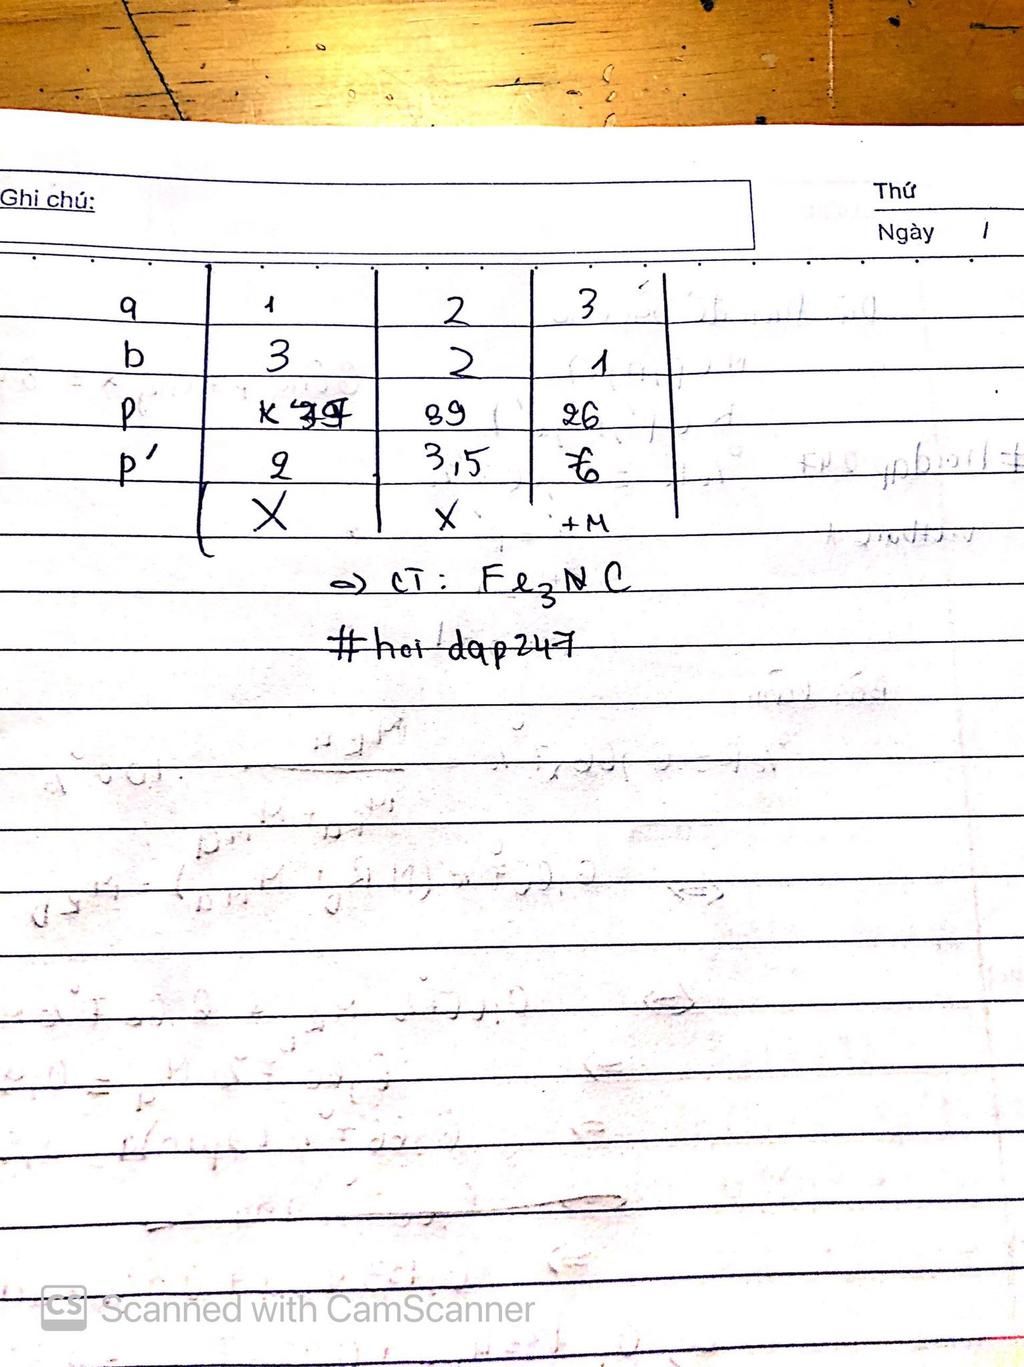 Ghi chú:
Thứ
Ngày /
a 1 2 3
b 3 2 1
p 39 26
p' 2 3,5 6
X X +M
=> CT: Fe3 C
#hoi dap 247
CS Scanned with CamScanner